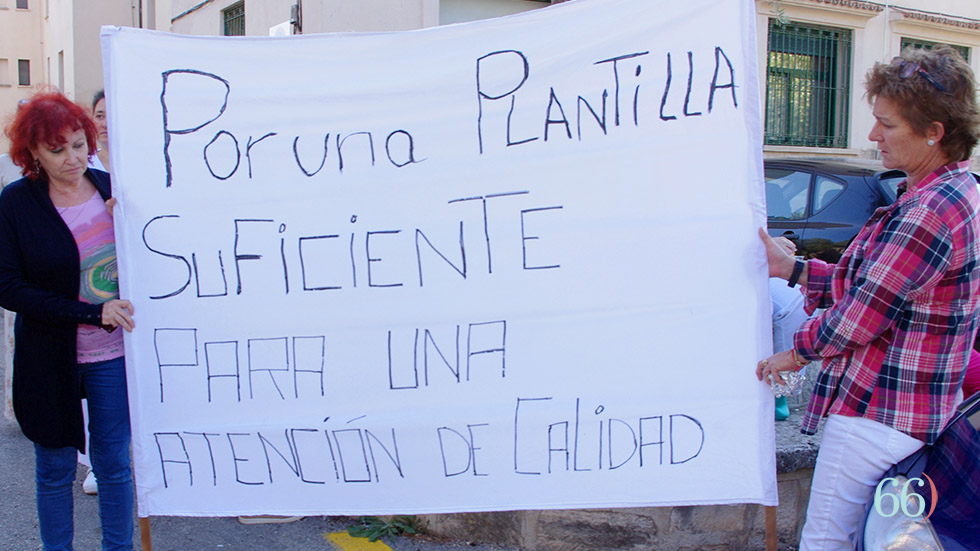 Por una PLANTiLLA
SUFiCiENTE
PARA UNA
ATENCIÓN DE CALiDAD
66)